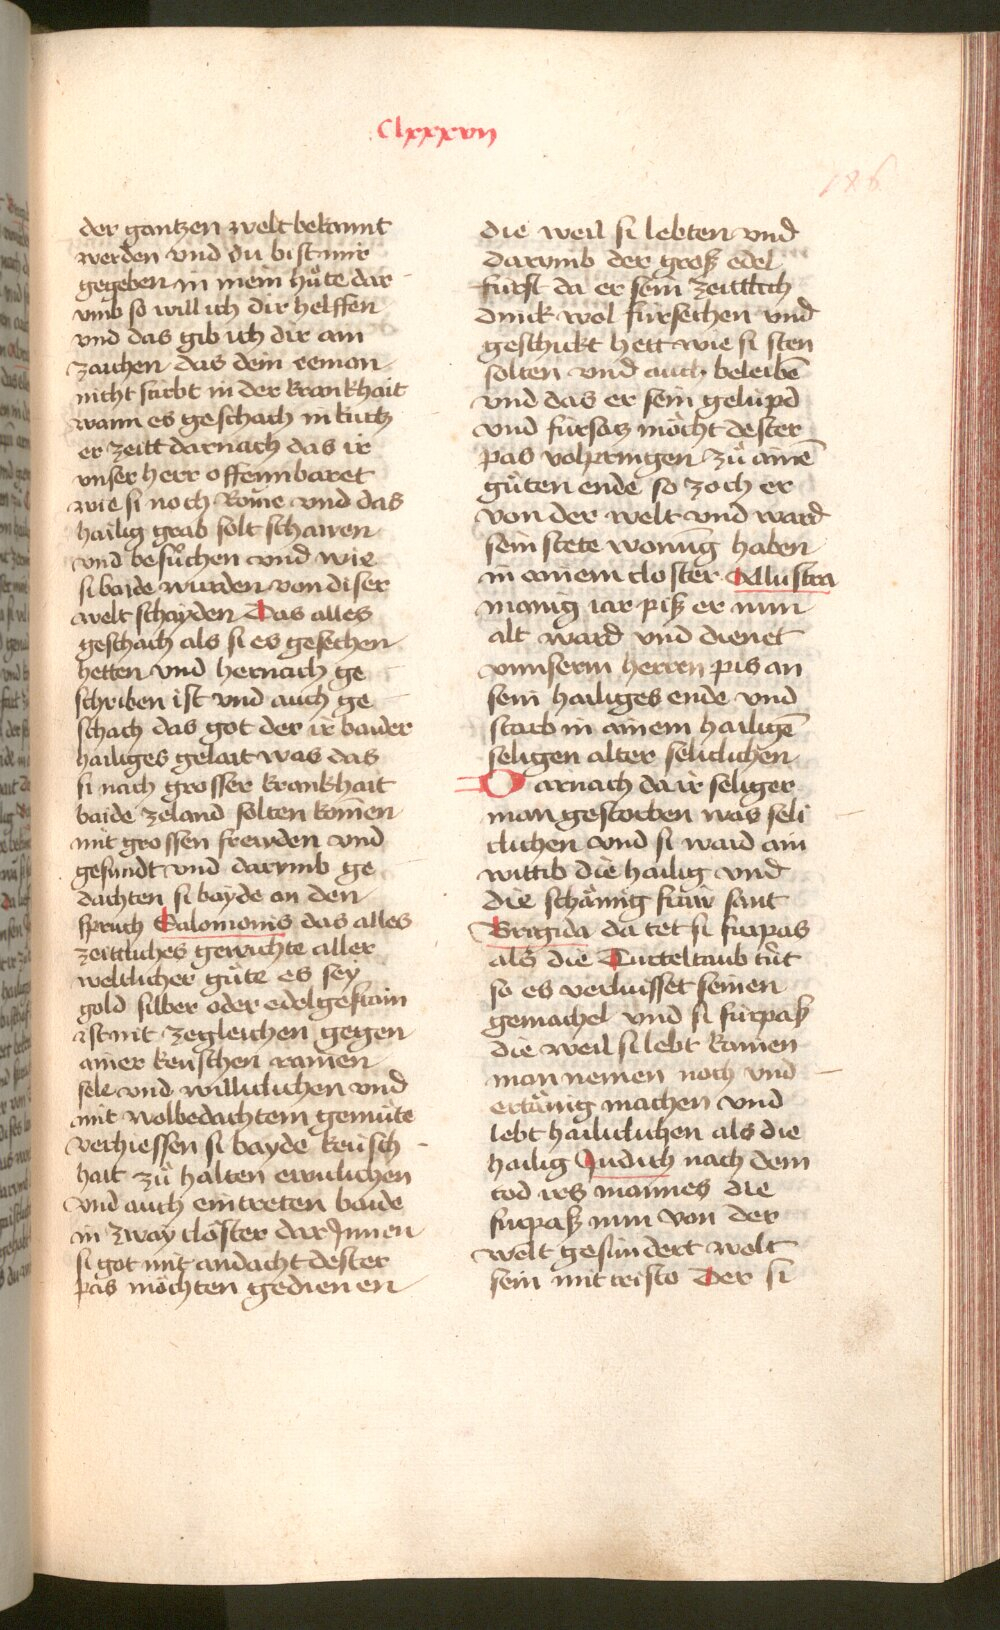 Clxxxvij
186
der gantzen welt bekannt
werden vnd du bist mir
gegeben in mein hůte dar
vmb so will ich dir helffen
vnd das gib ich dir am
zaichen das dein eeman
nicht stirbt in der krankhait
wann es geschach in kurtz
er zeitt darnach das ir
vnser herr offennbaret
wie si noch Rome vnd das
hailig grab solt schawen
vnd besůchen vnd wie
si baide wurden von diser
welt schayden Das alles
geschach als si es gesechen
hetten vnd hernach ge
schriben ist vnd auch ge
schach das got der ir baider
hailiges gelait was das
si nach grosser krankhait
baide zeland solten komen
mit grossen frewden vnd
gesundt vnd darvmb ge
dachten si bayde an den
spruch Salomonis das alles
zeittliches gewichte aller
weltlicher gůte es sey
gold silber oder edelgestain
ist nit zegleichen gegen
ainer keuschen rainen
sele vnd williclichen vnd
mit wolbedachtem gemůte
verhiessen si bayde keusch
hait zů halten ewiclichen
vnd auch eintreten baide
in zway closter dar Innen
si got mit andacht dester
pas möchten gedienen
die weil si lebten vnd
darvmb der groß edel
fürst da er sein zeittlich
dinck wol fürsechen vnd
geschickt hett wie si sten
solten vnd auch beleibē
vnd das er sein gelüpd
vnd fürsatz möcht dester
pas volpringen zů ainē
gůten ende so zoch er
von der welt vnd ward
sein stete wonūg haben
in ainem closter Allustra
manig iar piß er nun
alt ward vnd dienet
vnnserm herren pis an
sein hailiges ende vnd
starb in ainem hailigē
seligen alter seliclichen
Darnach da ir seliger
man gestorben was seli
clichen vnd si ward ain
wittib die hailig vnd
die schämig fraw sant
Brigida da tet si fürpas
als die Turteltaub tůt
so es verluisset seinen
gemachel vnd si fürpaß
die weil si lebt kainen
man nemen noch vnd
ertänig machen vnd
lebt hailiclichen als die
hailig Judith nach dem
tod irs mannes die
fürpaß nun von der
welt gesündert wolt
sein mit cristo Der si